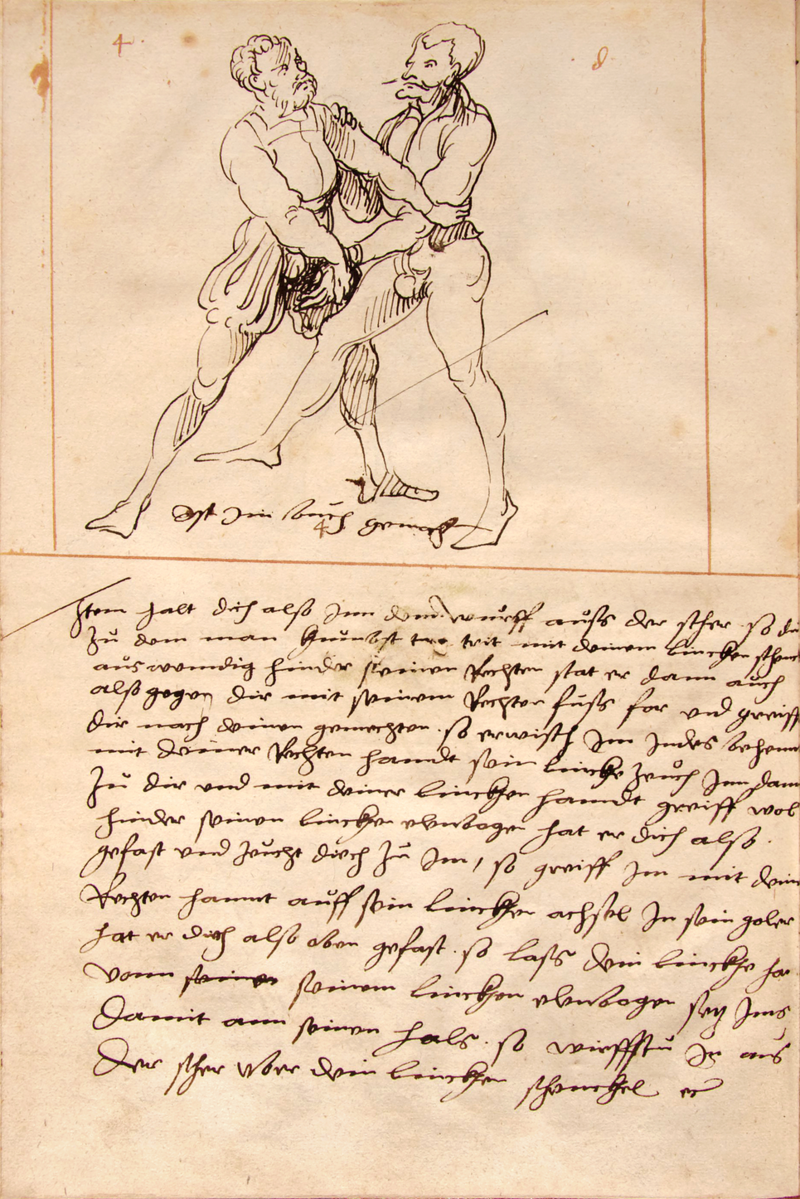 4. 8
Ist Im buch gemacht
4
Item halt dich also Inn dem wurff auss der scher so du
Zu dem man kumbst trit mit deinem linckhen schenc
auswendig hinder seinen Rechten stat er dann auch
also gegen dir mit seinem Rechten fuss for vnd greiff
dir nach deinen gemechten. so erwisch Im Indes behenn
mit deiner Rechten handt sein linckhe Zeuch Inn dam
Zu dir vnd mit deiner linckhen handt greiff wol
hinder seinen linckhen elenbogen hat er dich also.
gefast vnd Zeucht dich Zu Im, so greiff Im mit dein
Rechten hannt auff sein linckhen achsel In sein goler
hat er dich also oben gefast. so lass dein linckhe ha
vonn seinem linckhen elenbogen setz Ims
damit ann seinen hals. so wirffstu In aus
der scher vber dein linckhen schenckhel